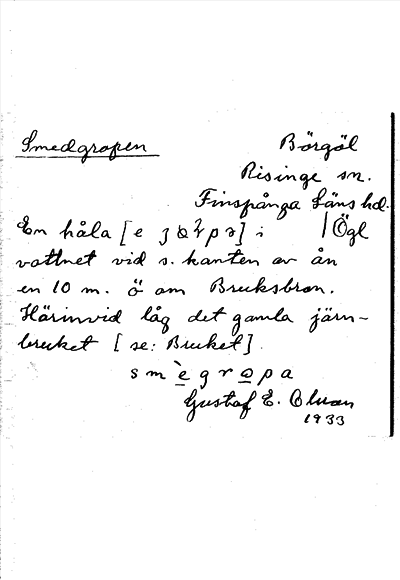 Smedgropen Börgöl
Risinge sn.
Finspånga Läns hd.
En håla [e ] i / Ögl
vattnet vid s. kanten av ån
en 10 m. ö om Bruksbron.
Härinvid låg det gamla järn-
bruket [se: Bruket].
smègropa
Gustaf E.
1933